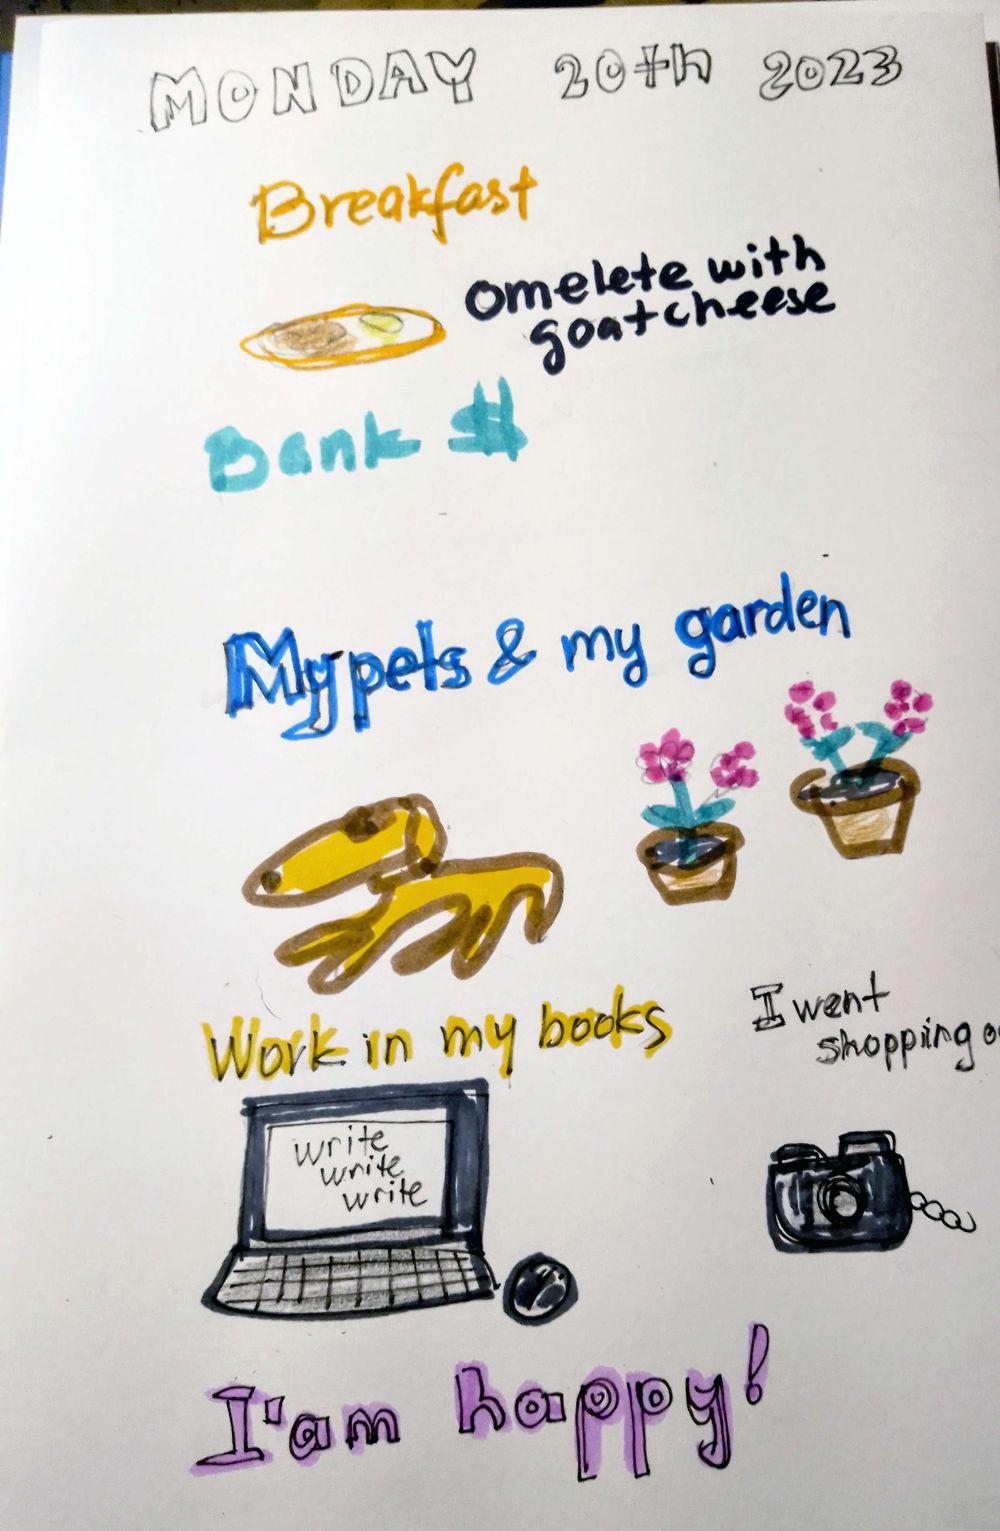 MONDAY 20th 2023
Breakfast
Omelete with
goat cheese
Bank $
My pets & my garden
Work in my books
I went
shopping
write
write
write
I'am happy!